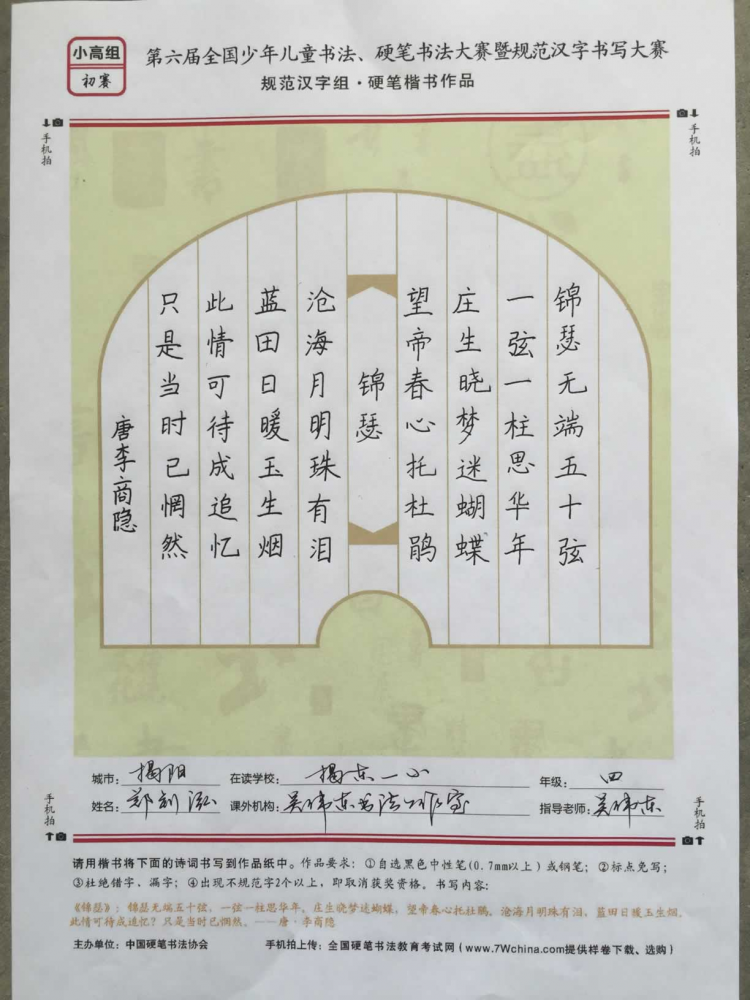 小高组
初赛
第六届全国少年儿童书法、硬笔书法大赛暨规范汉字书写大赛
规范汉字组·硬笔楷书作品
手机拍
手机拍
锦瑟无端五十弦
一弦一柱思华年
庄生晓梦迷蝴蝶
望帝春心托杜鹃
锦瑟
沧海月明珠有泪
蓝田日暖玉生烟
此情可待成追忆
只是当时已惘然
唐李商隐
城市：揭阳 在读学校：揭东一小 年级：四
姓名：郑 课外机构：吴伟东书法工作室 指导老师：吴伟东
手机拍
手机拍
请用楷书将下面的诗词书写到作品纸中。作品要求：①自选黑色中性笔(0.7mm以上)或钢笔；②标点免写；
③杜绝错字、漏字；④出现不规范字2个以上，即取消获奖资格。书写内容：
《锦瑟》：锦瑟无端五十弦，一弦一柱思华年。庄生晓梦迷蝴蝶，望帝春心托杜鹃。沧海月明珠有泪，蓝田日暖玉生烟。
此情可待成追忆？只是当时已惘然。——唐·李商隐
主办单位：中国硬笔书法协会 手机拍上传：全国硬笔书法教育考试网(www.7Wchina.com提供样卷下载、选购)